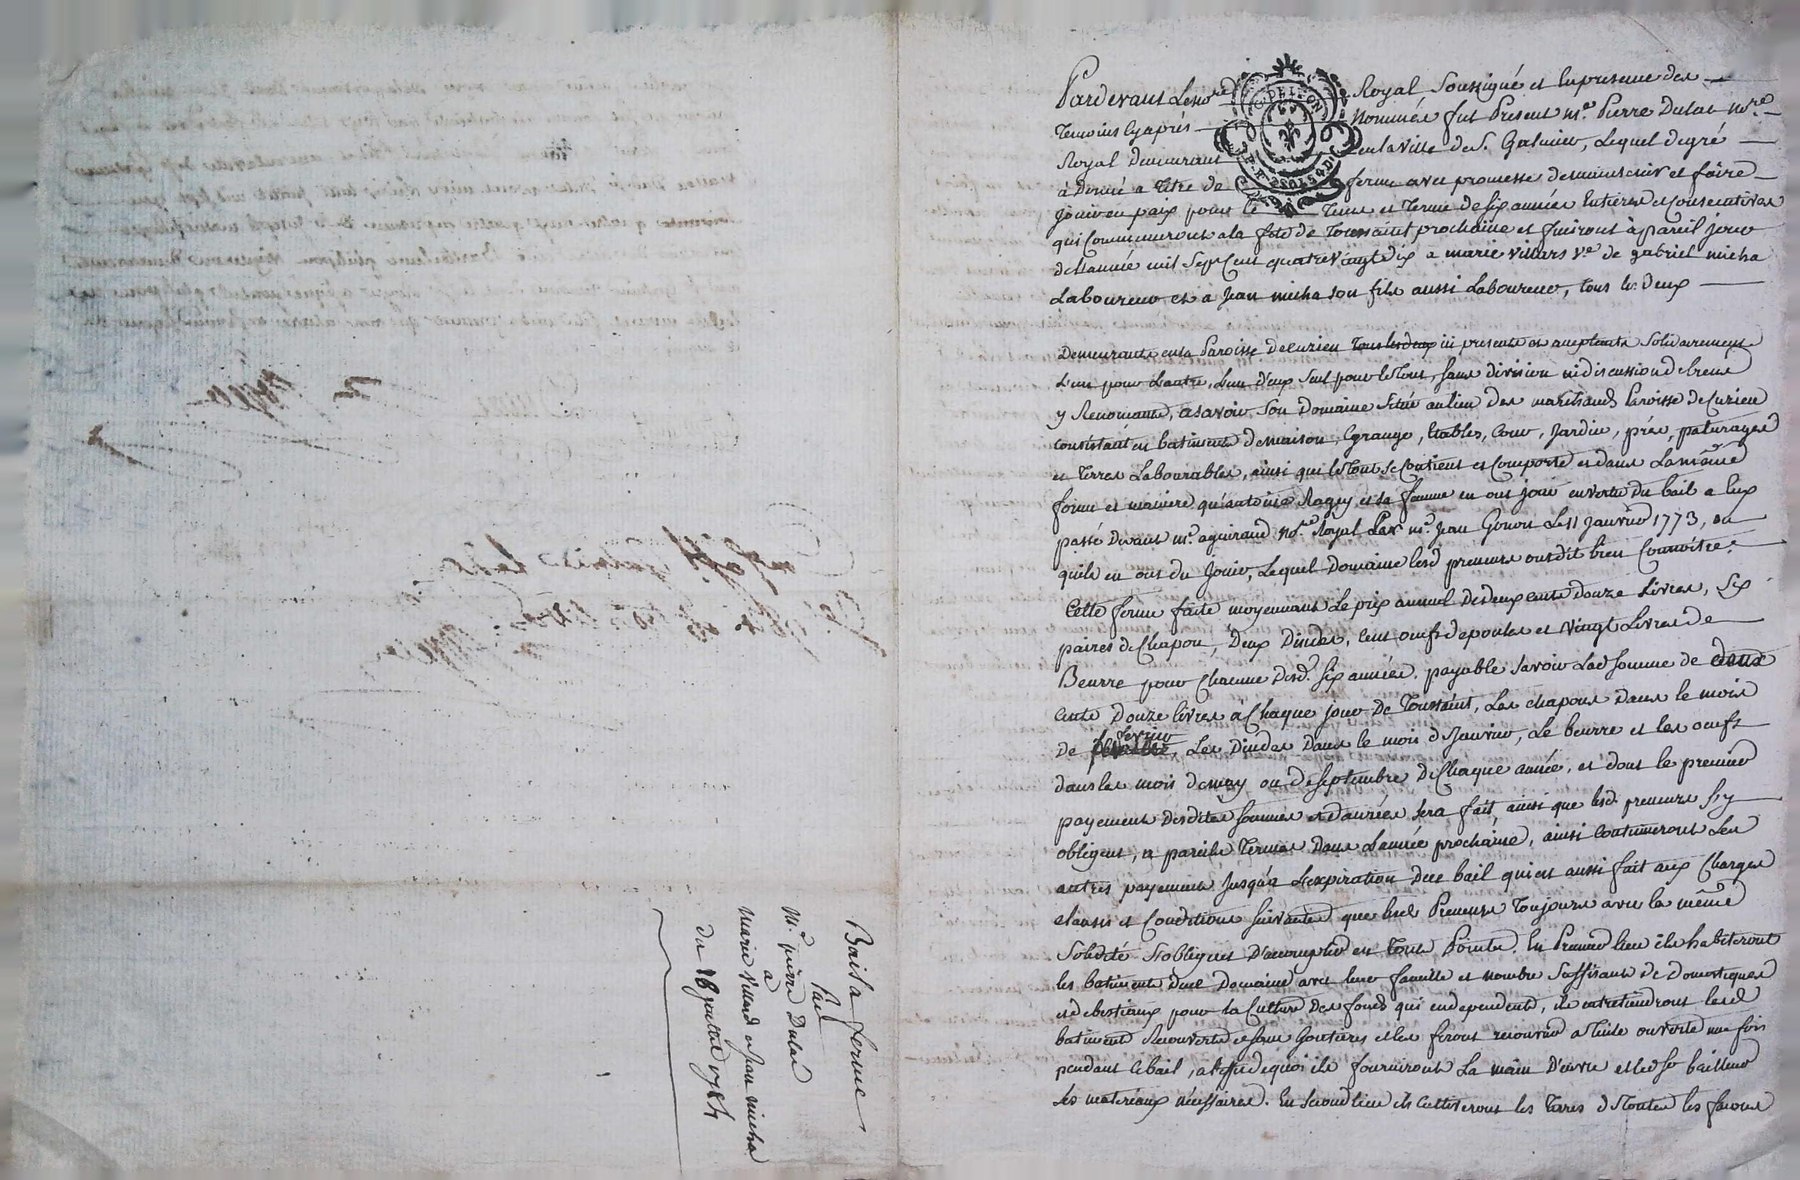 Pardevant Le no.re Royal Soussigné et En presence des
Temoins Cy aprés Nommés fut Present m.e Pierre Dulac no.re
Royal demeurant en la ville de S. Galmier, Lequel de gré
à Donné a Titre de ferme avec promesse de maintenir et faire
Jouir en paix pour le Tems et Terme de six années Entieres et Consecutives
qui Commenceront a la fête de Toussaint prochaine et finiront à pareil jour
de l'année mil sept Cent quatre vingt dix a marie villars v.e de gabriel micha
Laboureur et a Jean micha son fils aussi Laboureur, tous les deux
Demeurants en la Paroisse de Curieu ici presents et acceptants Solidairement
L'un pour L'autre, L'un d'eux seul pour le Tout, sans division ni discussion de biens
y Renonçants, a Savoir Son Domaine Situé au lieu des marchands Paroisse de Curieu
Consistant en batiments de maison, Grange, Etables, Cour, Jardin, prés, paturages
et Terres Labourables, ainsi que le Tout se Contient et Comporte et dans La même
forme et maniere qu'antoine Ragey et sa femme en ont joui en vertu du bail a Eux
passé Devant m.e aguiraud no.re Royal Par m.e Jean Gonon Le 11 Janvier 1773, ou
qu'ils en ont du Jouir, Lequel Domaine lesd preneurs ont dit bien Connoitre.
Cette ferme faite moyennant Le prix annuel de deux cents douze Livres, Six
paires de Chapon, Deux Dindes, Cent oeufs de poules et Vingt Livres de
Beurre pour Chacune desd. Six années, payable Savoir Lad Somme de deux
Cents Douze livres à Chaque jour de Toussaint, Les chapons Dans le mois
De fevrier, Les Dindes Dans le mois de Janvier, Le beurre et les oeufs
dans les mois de may ou de septembre de Chaque année, et dont le premier
payement Desdites sommes et danrées sera fait, ainsi que lesd. preneurs s'y
obligent, a pareils Termes Dans L'année prochaine, ainsi Continueront Les
autres payements Jusqu'a L'expiration Du bail qui est aussi fait aux Charges
Clauses et Conditions suivantes que lesd Preneurs Toujours avec la même
Solidité S'obligent D'accomplir en Tous Points. En Premier lieu ils habiteront
les batiments dud Domaine avec leur famille et nombre Suffisant de Domestiques
et de bestiaux pour la Culture Des fonds qui en dependent, ils entretiendront lesd
batiments Recouverts et sans Goutieres et les feront recouvrir a Tuile ouverte une fois
pendant le bail, a l'effet de quoi ils fourniront La main D'œuvre et led Sr bailleur
les materiaux nécessaires. En Second lieu ils Cultiveront les Terres de Toutes les façons
Bail a ferme
Par
M.e pierre Dulac
a
marie villard et Jean micha
du 18 juillet 1784